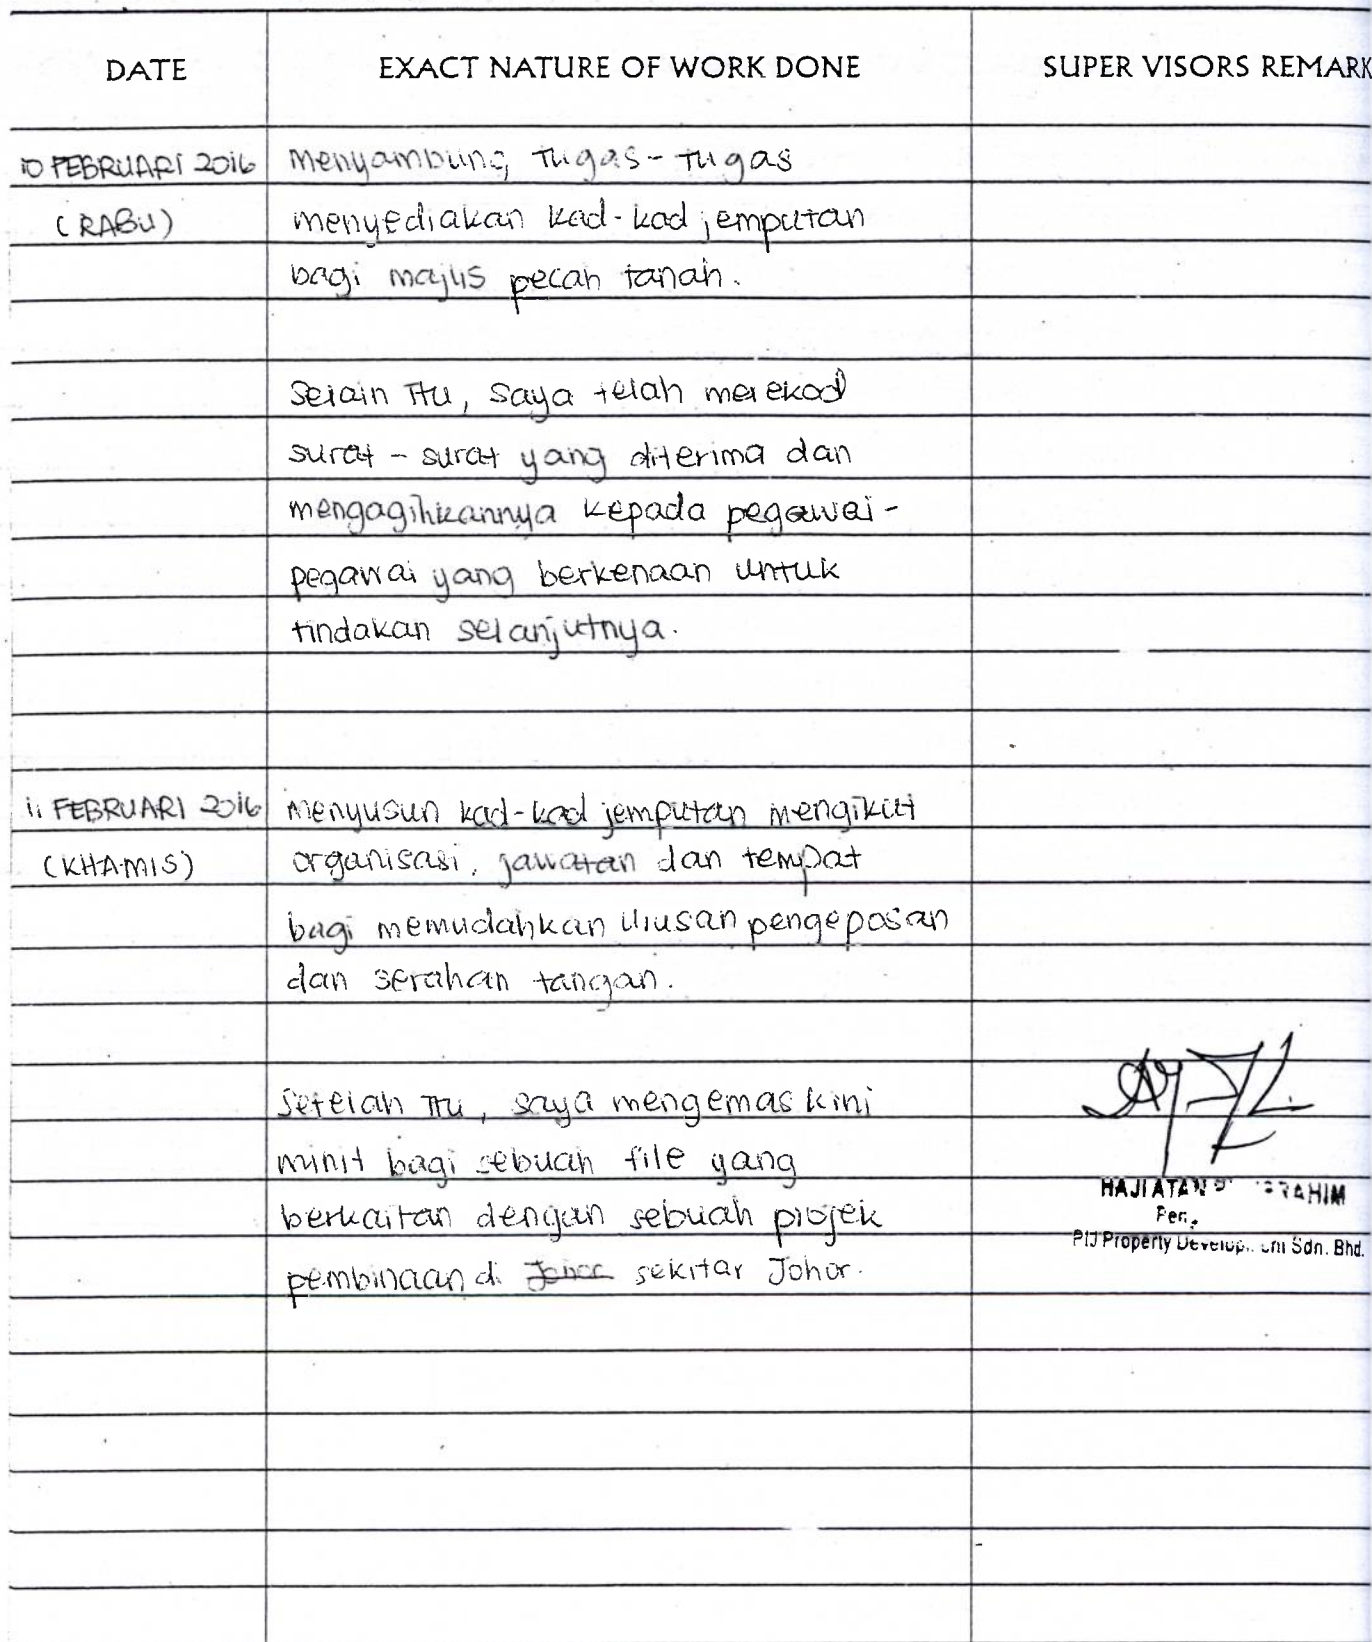 DATE EXACT NATURE OF WORK DONE SUPER VISORS REMARK
10 FEBRUARI 2016 menyambung tugas-tugas
(RABU) menyediakan kad-kad jemputan
bagi majlis pecah tanah.
Selain itu, saya telah merekod
surat-surat yang diterima dan
mengagihkannya kepada pegawai-
pegawai yang berkenaan untuk
tindakan selanjutnya.
11 FEBRUARI 2016 menyusun kad-kad jemputan mengikut
(KHAMIS) organisasi, jawatan dan tempat
bagi memudahkan urusan pengeposan
dan serahan tangan.
Setelah itu, saya mengemaskini
minit bagi sebuah file yang
berkaitan dengan sebuah projek
pembinaan di Johor sekitar Johor.
HAJI ATAN
PIJ Property Sdn. Bhd.